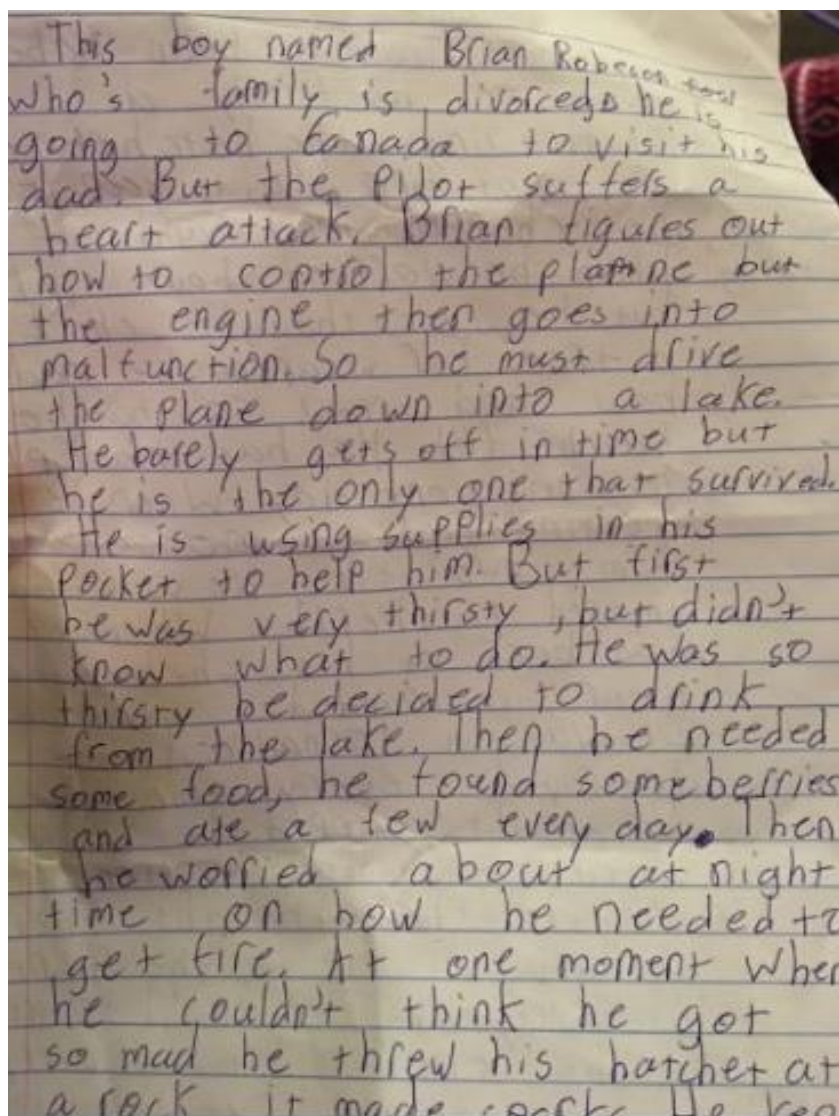 This boy named Brian Robeson
who's family is divorced he is
going to Canada to visit his
dad. But the Pilot suffers a
heart attack. Brian figures out
how to control the plane but
the engine then goes into
malfunction. So he must drive
the plane down into a lake.
He barely gets off in time but
he is the only one that survived.
He is using supplies in his
pocket to help him. But first
he was very thirsty, but didn't
know what to do. He was so
thirsty he decided to drink
from the lake. Then he needed
some food, he found some berries
and ate a few every day. Then
he worried about at night
time on how he needed to
get fire. At one moment when
he couldn't think he got
so mad he threw his hatchet at
a rock it made